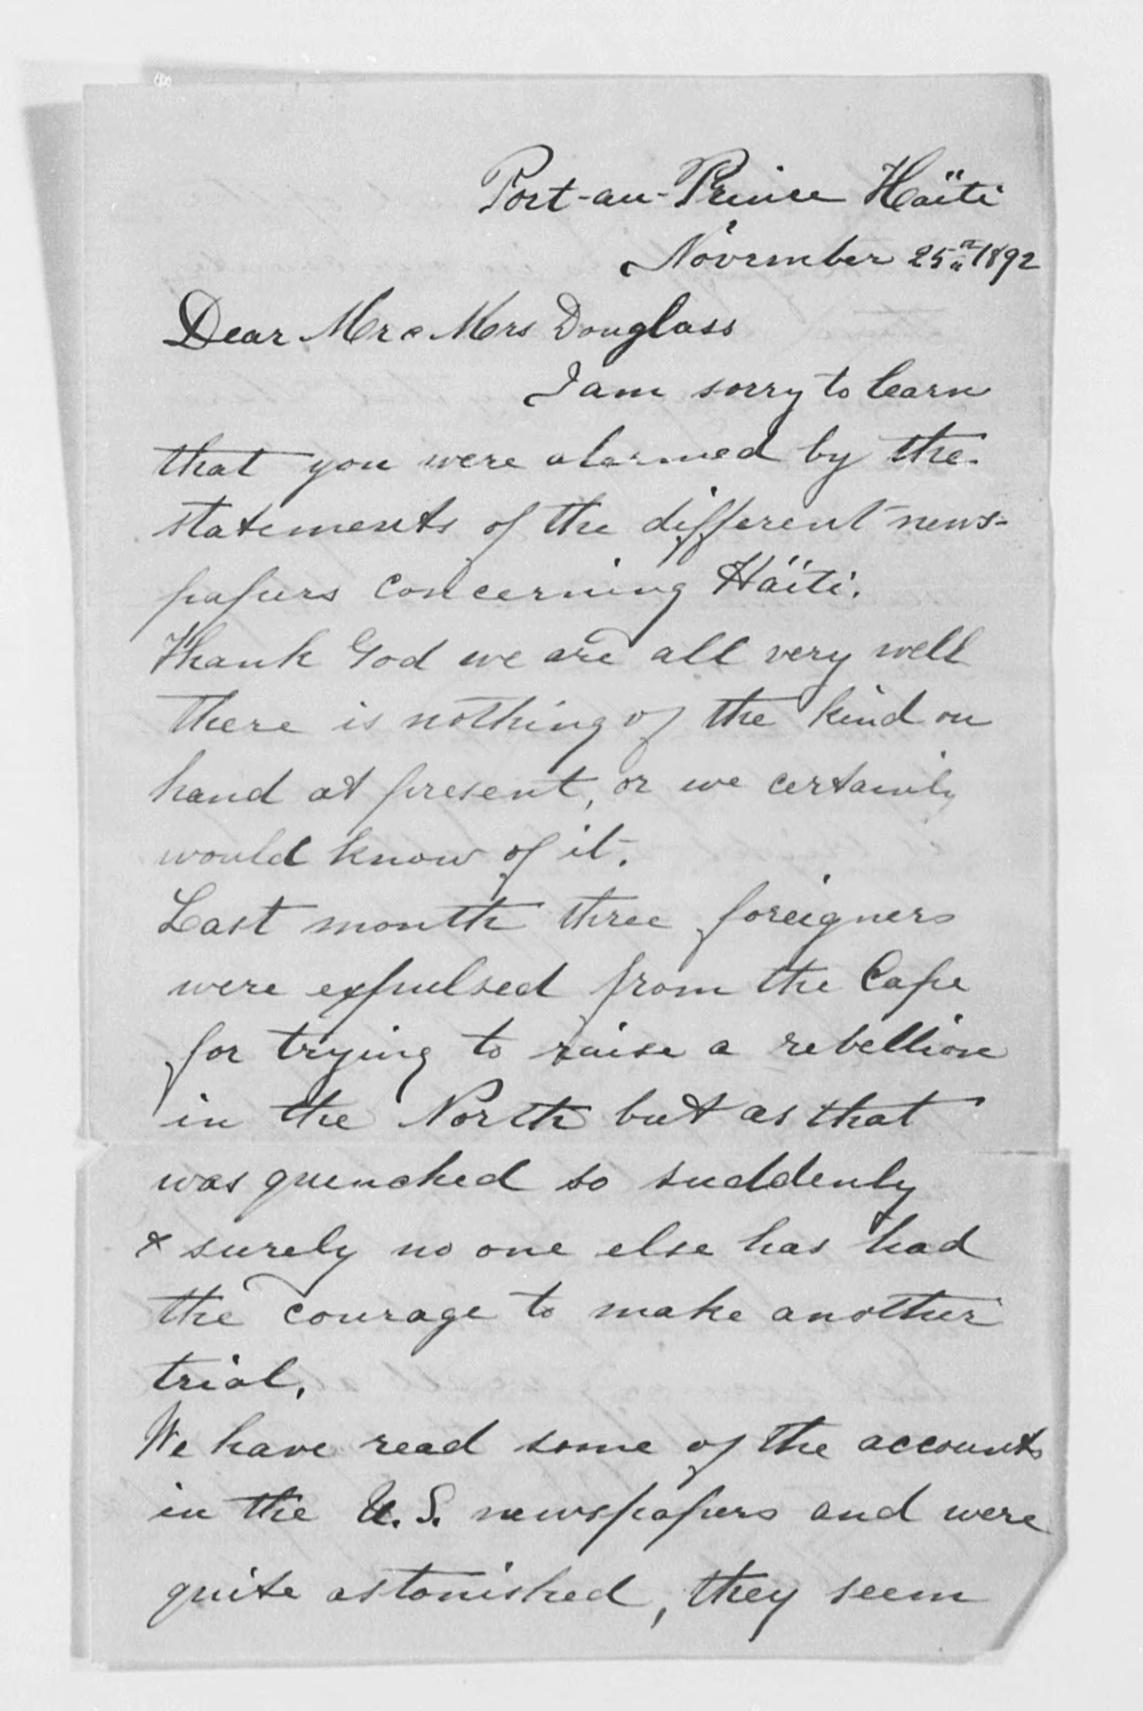 Port-au-Prince Haïti
November 25th 1892
Dear Mr & Mrs Douglass
I am sorry to learn
that you were alarmed by the
statements of the different news-
papers concerning Haïti.
Thank God we are all very well
there is nothing of the kind on
hand at present, or we certainly
would know of it.
Last month three foreigners
were expulsed from the Cape
for trying to raise a rebellion
in the North but as that
was quenched so suddenly
& surely no one else has had
the courage to make another
trial.
We have read some of the accounts
in the U.S. newspapers and were
quite astonished, they seem